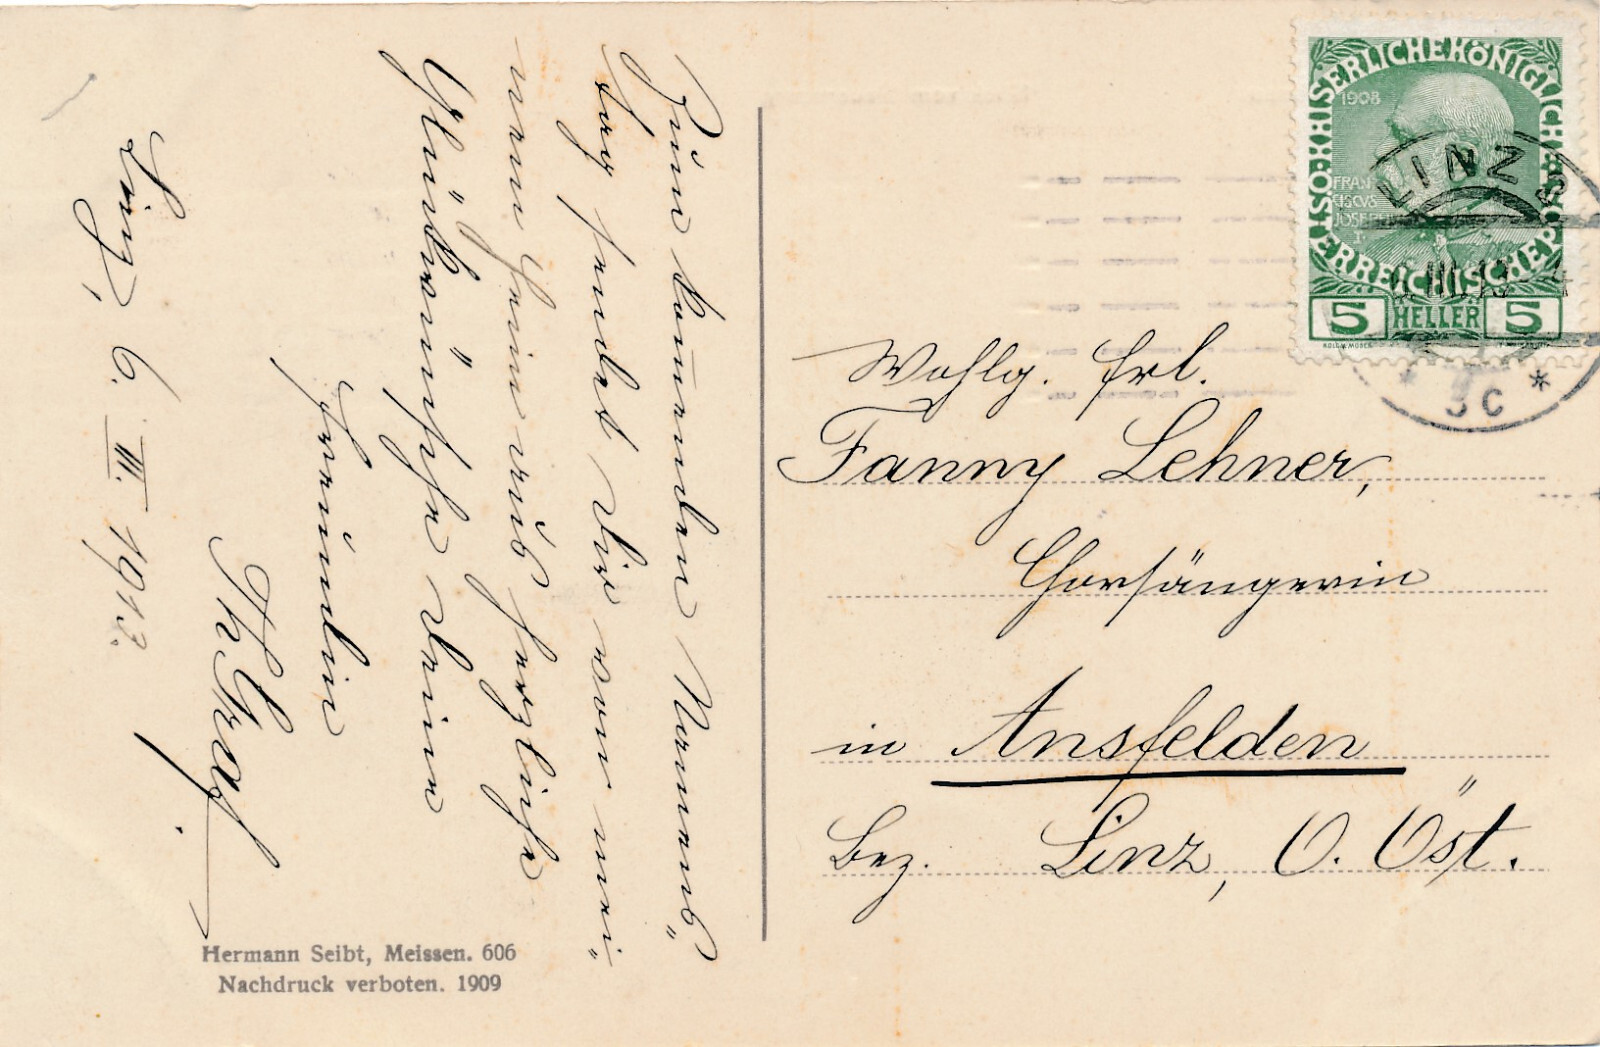 Zum kom̄enden Namens„
tag sendet Dir von mei„
nem Heim aus herzliche
Glückwünsche Deine
Freundin
Th. Graf.
Linz, 6. III. 1913.
Hermann Seibt, Meissen. 606
Nachdruck verboten. 1909
KAISERLICHE KÖNIGLICHE ÖSTERREICHISCHE POST
1908
FRAN
CISCVS
JOSEPH
I.
5 HELLER 5
LINZ
III 13
Wohlg. Frl.
Fanny Lehner,
Chorsängerin
in Ansfelden
Bez. Linz, O. Öst.